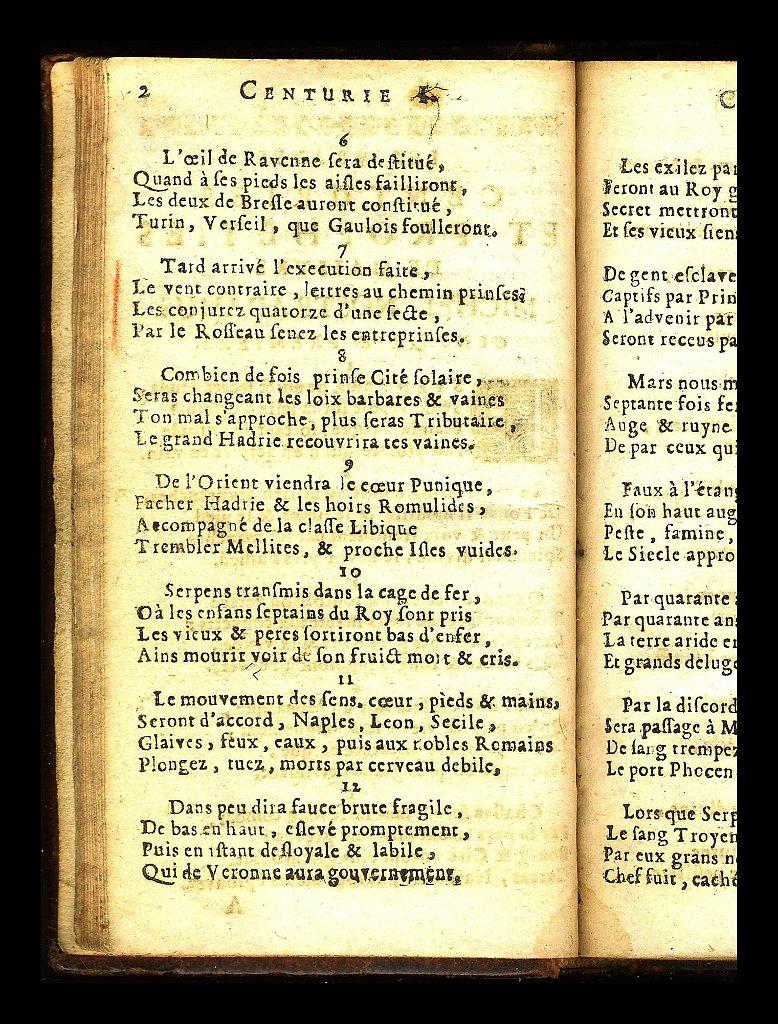 2 CENTURIE I.
6
L'œil de Ravenne sera destitué,
Quand à ses pieds les aisles failliront,
Les deux de Bresse auront constitué,
Turin, Verseil, que Gaulois foulleront.
7
Tard arrivé l'execution faite,
Le vent contraire, lettres au chemin prinses:
Les conjurez quatorze d'une secte,
Par le Rosseau senez les entreprinses.
8
Combien de fois prinse Cité solaire,
Seras changeant les loix barbares & vaines
Ton mal s'approche, plus seras Tributaire,
Le grand Hadrie recouvrira tes vaines.
9
De l'Orient viendra le cœur Punique,
Facher Hadrie & les hoirs Romulides,
Accompagné de la classe Libique
Trembler Mellites, & proche Isles vuides.
10
Serpens transmis dans la cage de fer,
Où les enfans septains du Roy sont pris
Les vieux & peres sortiront bas d'enfer,
Ains mourir voir de son fruict mort & cris.
11
Le mouvement des sens, cœur, pieds & mains,
Seront d'accord, Naples, Leon, Secile,
Glaives, feux, eaux, puis aux nobles Romains
Plongez, tuez, morts par cerveau debile,
12
Dans peu dira fauce brute fragile,
De bas en haut, eslevé promptement,
Puis en istant desloyale & labile,
Qui de Veronne aura gouvernement.
A
C
Les exilez par
Feront au Roy
Secret mettront
Et ses vieux
De gent esclave
Captifs par
A l'advenir par
Seront receus
Mars nous
Septante fois
Auge & ruyne
De par ceux
Faux à
En son haut
Peste, famine,
Le Siecle
Par quarante
Par quarante
La terre aride
Et grands
Par la
Sera passage à
De sang
Le port Phocen
Lors que
Le sang
Par eux grans
Chef fuit,